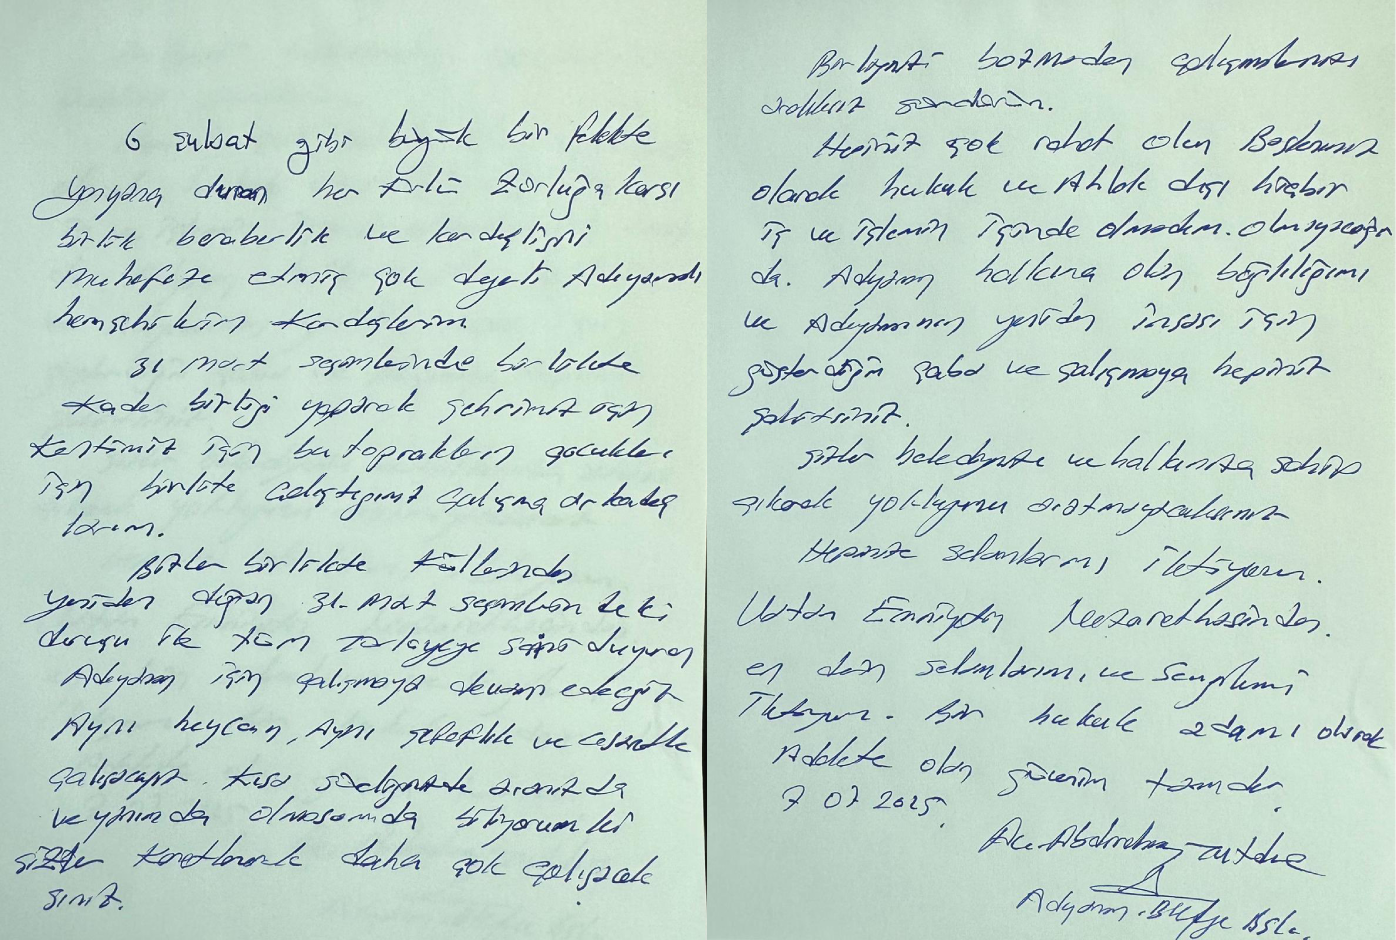 6 şubat gibi büyük bir felekte
yanyana duran her türlü zorluğa karşı
birlik beraberlik ve kardeşliğini
muhafaza etmiş çok değerli Adıyamanlı
hemşehrilerim kardeşlerim
31 mart seçimlerinde birlikte
kader birliği yaparak şehrimiz için
kentimiz için bu toprakların çocukları
için birlikte çalıştığımız çalışma arkadaş
larım.
Bizler birlikte küllerinden
yeniden doğan 31. mart seçimlerindeki
duruşu ile tüm
Adıyaman için çalışmaya devam edeceğiz
Aynı heycan, Aynı şefeflik ve cesaretle
çalışacağız. Kısa aranızda
ve yanında olmasamda biliyorum ki
sizler daha çok çalışacak
sınız.
Birliğinizi bozmadan çalışmalarınızı
sürdürün.
Hepiniz çok rahat olun Başkanınız
olarak hukuk ve Ahlak dışı hiçbir
iş ve işlemin içinde olmadım. olmayacağım
da. Adıyaman halkına olan bağlılığımı
ve Adıyamanın yeniden inşası için
gösterdiğim çaba ve çalışmaya hepiniz
şahitsiniz.
sizler belediyenize ve halkınıza sahip
çıkarak yokluğumu aratmayacaksınız
Hepinize selamlarımı iletiyorum.
Vatan Emniyeten Nezarethasinden.
en derin selamlarımı, ve Sevgilerimi
İletiyorum. Bir hukuk adamı olarak
Adalete olan güvenim tamdır.
7 07 2025.
Av. Abdurrahman Tutdere
Adıyaman. Bld Bşk.